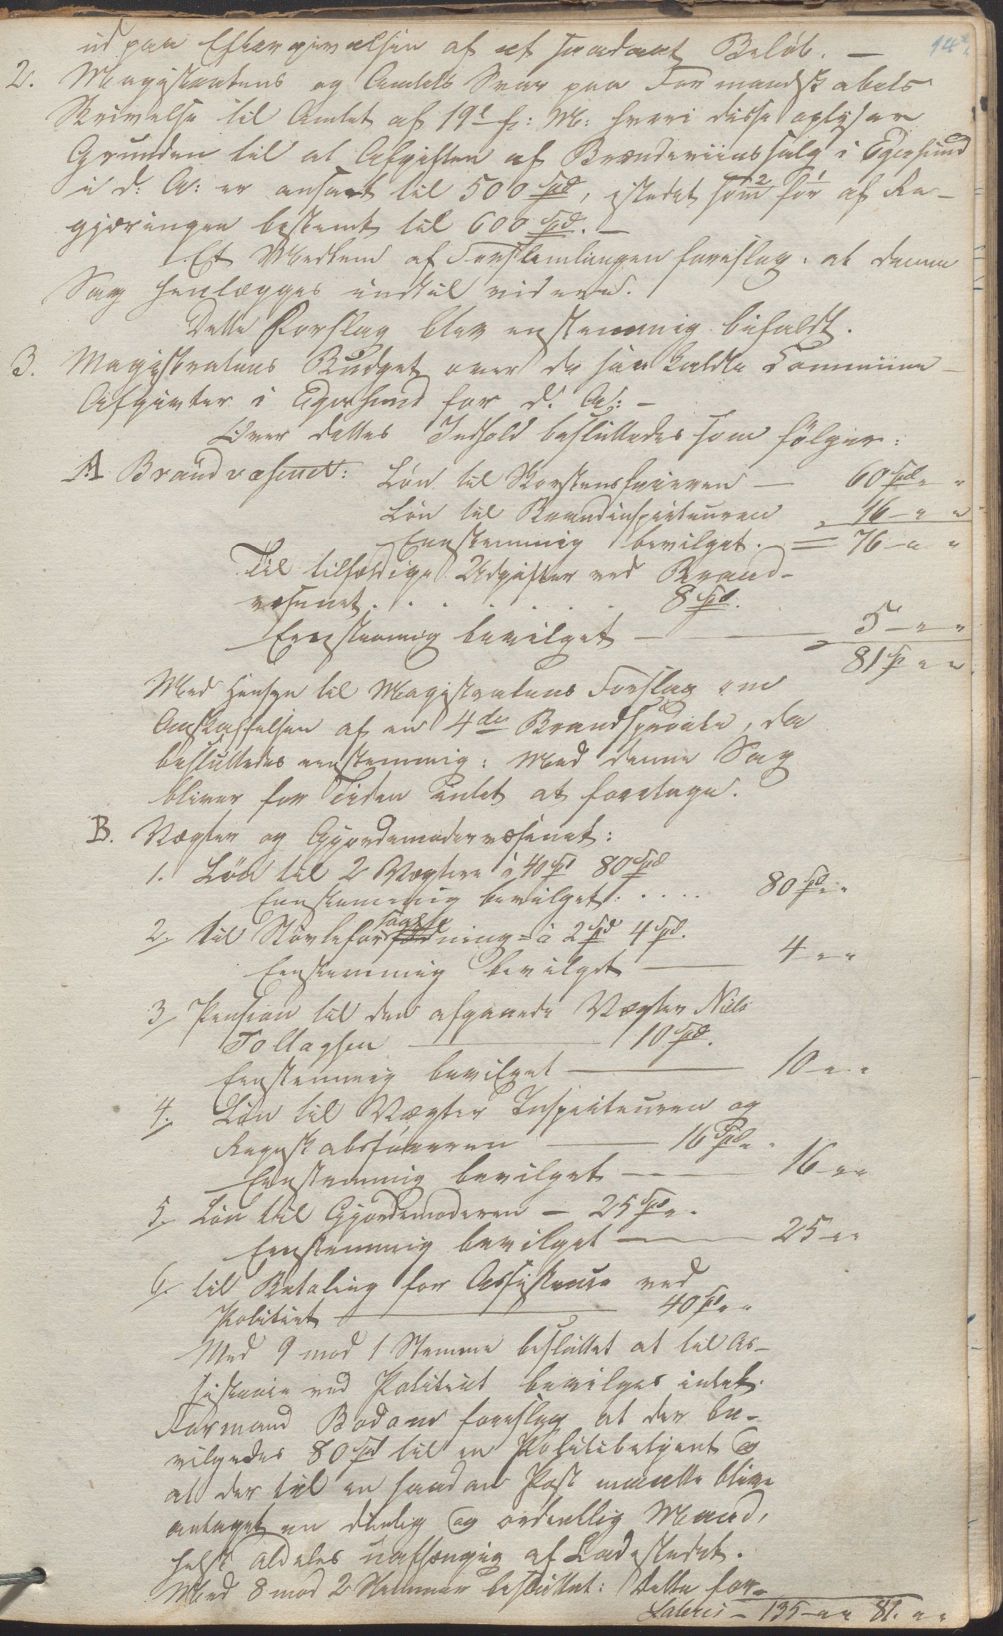 ud paa Eftergivelsen af et saadant Beløb. —
2. Magistratens og Amtets Svar paa Formandskabets
Skrivelse til Amtet af 19de f: M: hvori disse oplyser
Grunden til at Afgiften af Brændeviinssalg i Egersund
i d: A: er ansat til 500 Spd, istedet som før af Re-
gjæringen bestemt til 600 Spd. —
Et Medlem af Forsamlingen foreslog: at denne
Sag henlægges indtil videre.
Dette Forslag blev enstemmig bifaldt.
3. Magistratens Budget over de saa kaldte Commune-
Afgivter i Egersund for d. A: —
Over dettes Indhold besluttedes som følger:
A Brandvæsenet: Løn til Skorsteensfeieren — 60 Spd „ „
Løn til Brandinspecteuren „ 16 - „ „
Eenstemmig bevilget. — 76 - „ „
Til tilfældige Udgifter ved Brand-
væsenet . . . . . . . 8 Spd.
Eenstemmig bevilget — 5 - „ „
81 Sp „ „
Med Hensyn til Magistratens Forslag om
Anskaffelsen af en 4de Brandsprøite, da
besluttedes eenstemmig: Med denne Sag
bliver for Tiden intet at foretage.
B. Vægter og Gjordemodervæsenet:
1. Løn til 2 Vægtere à 40 Spd 80 Spd
Eenstemmig bevilget . . . . . 80 Spd „ „
2. til Støvleforsaaling à 2 Spd 4 Spd.
Eenstemmig bevilget — 4 „ „
3. Pension til den afgaaede Vægter Niels
Tollagsen — 10 Spd.
Eenstemmig bevilget — 10 „ „
4. Løn til Vægter Inspecteuren og
Regnskabsføreren — 16 Spd „ „
Eenstemmig bevilget — 16 - „ „
5. Løn til Gjordemoderen — 25 Spd „ „
Eenstemmig bevilget — 25 - „ „
6. til Betaling for Assistance ved
Politiet — 40 Sp „ „
Med 9 mod 1 Stemme besluttet at til As-
sistance ved Politiet bevilges intet.
Formand Bodom foreslog at der be-
vilgedes 80 Spd til en Politibetjent og
at der til en saadan Post maatte blive
antaget en duelig og ordentlig Mand,
helst aldeles uafhængig af Ladestedet.
Med 8 mod 2 Stemmer besluttet: Dette for-
Lateris — 135 - „ „ 81. „ „